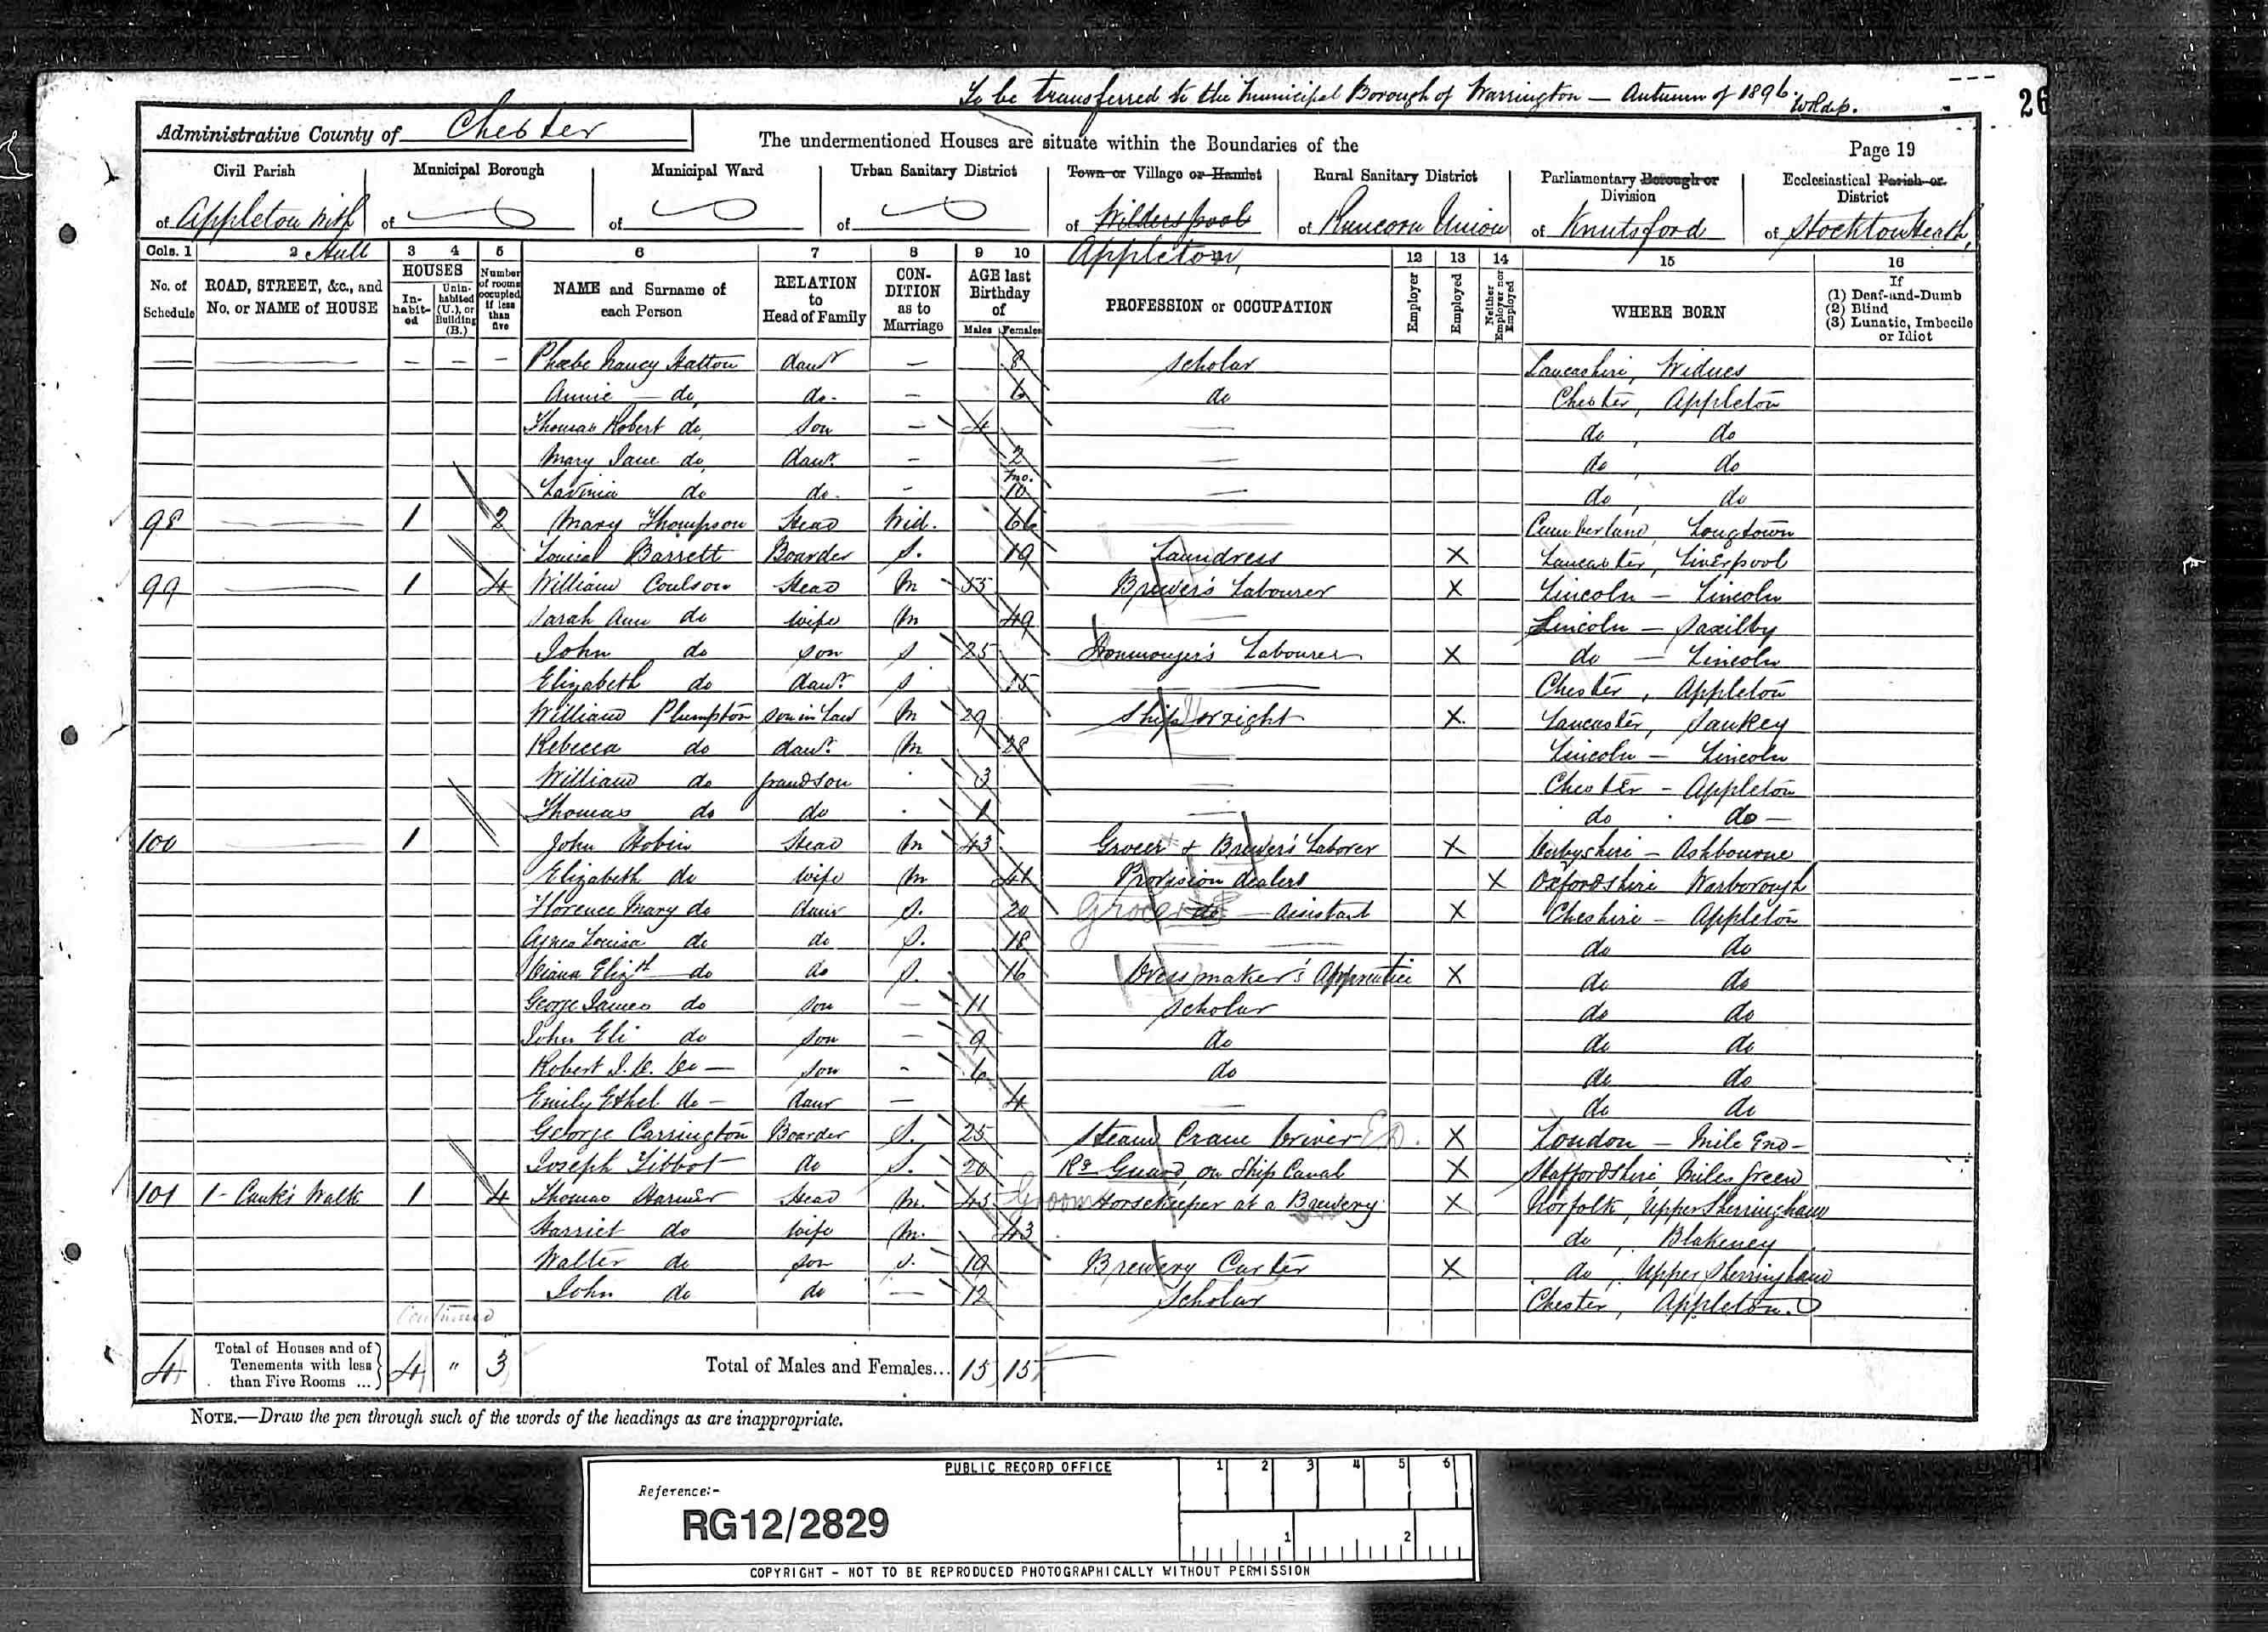 To be transferred to the Municipal Borough of Warrington — Autumn of 1896.
26
Administrative County of Chester
The undermentioned Houses are situate within the Boundaries of the
Page 19
Civil Parish Municipal Borough Municipal Ward Urban Sanitary District Town or Village or Hamlet Rural Sanitary District Parliamentary Borough or Division Ecclesiastical Parish or District
of Appleton with Hull of of of of Wilderspool Appleton, of Runcorn Union of Knutsford of Stockton Heath,
Cols. 1 2 3 4 5 6 7 8 9 10 11 12 13 14 15 16
No. of Schedule ROAD, STREET, &c., and No. or NAME of HOUSE HOUSES Inhabited Uninhabited (U.), or Building (B.) Number of rooms occupied if less than five NAME and Surname of each Person RELATION to Head of Family CONDITION as to Marriage AGE last Birthday of Males Females PROFESSION or OCCUPATION Employer Employed Neither Employer nor Employed WHERE BORN If (1) Deaf-and-Dumb (2) Blind (3) Lunatic, Imbecile or Idiot
— — — — — Phœbe Nancy Hatton daur — 8 Scholar Lancashire, Widnes
Annie — do, do. — 6 do Chester, Appleton
Thomas Robert do, Son — 4 — do, do
Mary Jane do, daur. — 2 — do, do
Lavinia do do. — mo. 10 — do, do
98 — 1 2 Mary Thompson Head Wid. 66 — Cumberland, Longtown
Louisa Barrett Boarder S. 19 Laundress X Lancaster, Liverpool
99 — 1 4 William Coulson Head M 55 Brewer's Labourer X Lincoln — Lincoln
Sarah Ann do wife M 49 — Lincoln — Saxilby
John do son S 25 Ironmonger's Labourer X do — Lincoln
Elizabeth do daur. S 15 — Chester, Appleton
William Plumpton son in Law M 29 Shipwright X Lancaster, Sankey
Rebecca do daur. M 28 Lincoln — Lincoln
William do grandson 3 — Chester - Appleton
Thomas do do 1 — do do —
100 — 1 John Hobin Head M 43 Grocer & Brewer's Laborer X Derbyshire — Ashbourne
Elizabeth do wife M 41 Provision dealers X Oxfordshire Warborough
Florence Mary do daur S. 20 Grocer's do — assistant X Cheshire — Appleton
Agnes Louisa do do S. 18 — do do
Diana Elizth do do S. 16 Dressmaker's Apprentice X do do
George James do son — 11 Scholar do do
John Eli do son — 9 do do do
Robert J. D. Do — son - 6 do do do
Emily Ethel do — daur — 4 — do do
George Carrington Boarder S. 25 Steam Crane Driver X London — Mile End —
Joseph Tibbot do S. 20 Ry Guard, on Ship Canal X Staffordshire, Miles Green
101 1 - Cank's Walk 1 4 Thomas Harmer Head M. 45 Groom Horsekeeper at a Brewery X Norfolk, Upper Sherringham
Harriet do wife M. 43 do, Blakeney
Walter do son S. 19 Brewery Carter X do, Upper Sherringham
John do do — 12 Scholar Chester, Appleton.
Continued
4 Total of Houses and of Tenements with less than Five Rooms ... 4 " 3 Total of Males and Females... 15 15
NOTE.—Draw the pen through such of the words of the headings as are inappropriate.
PUBLIC RECORD OFFICE
1 2 3 4 5 6
Reference:-
RG12/2829
1 2
COPYRIGHT - NOT TO BE REPRODUCED PHOTOGRAPHICALLY WITHOUT PERMISSION